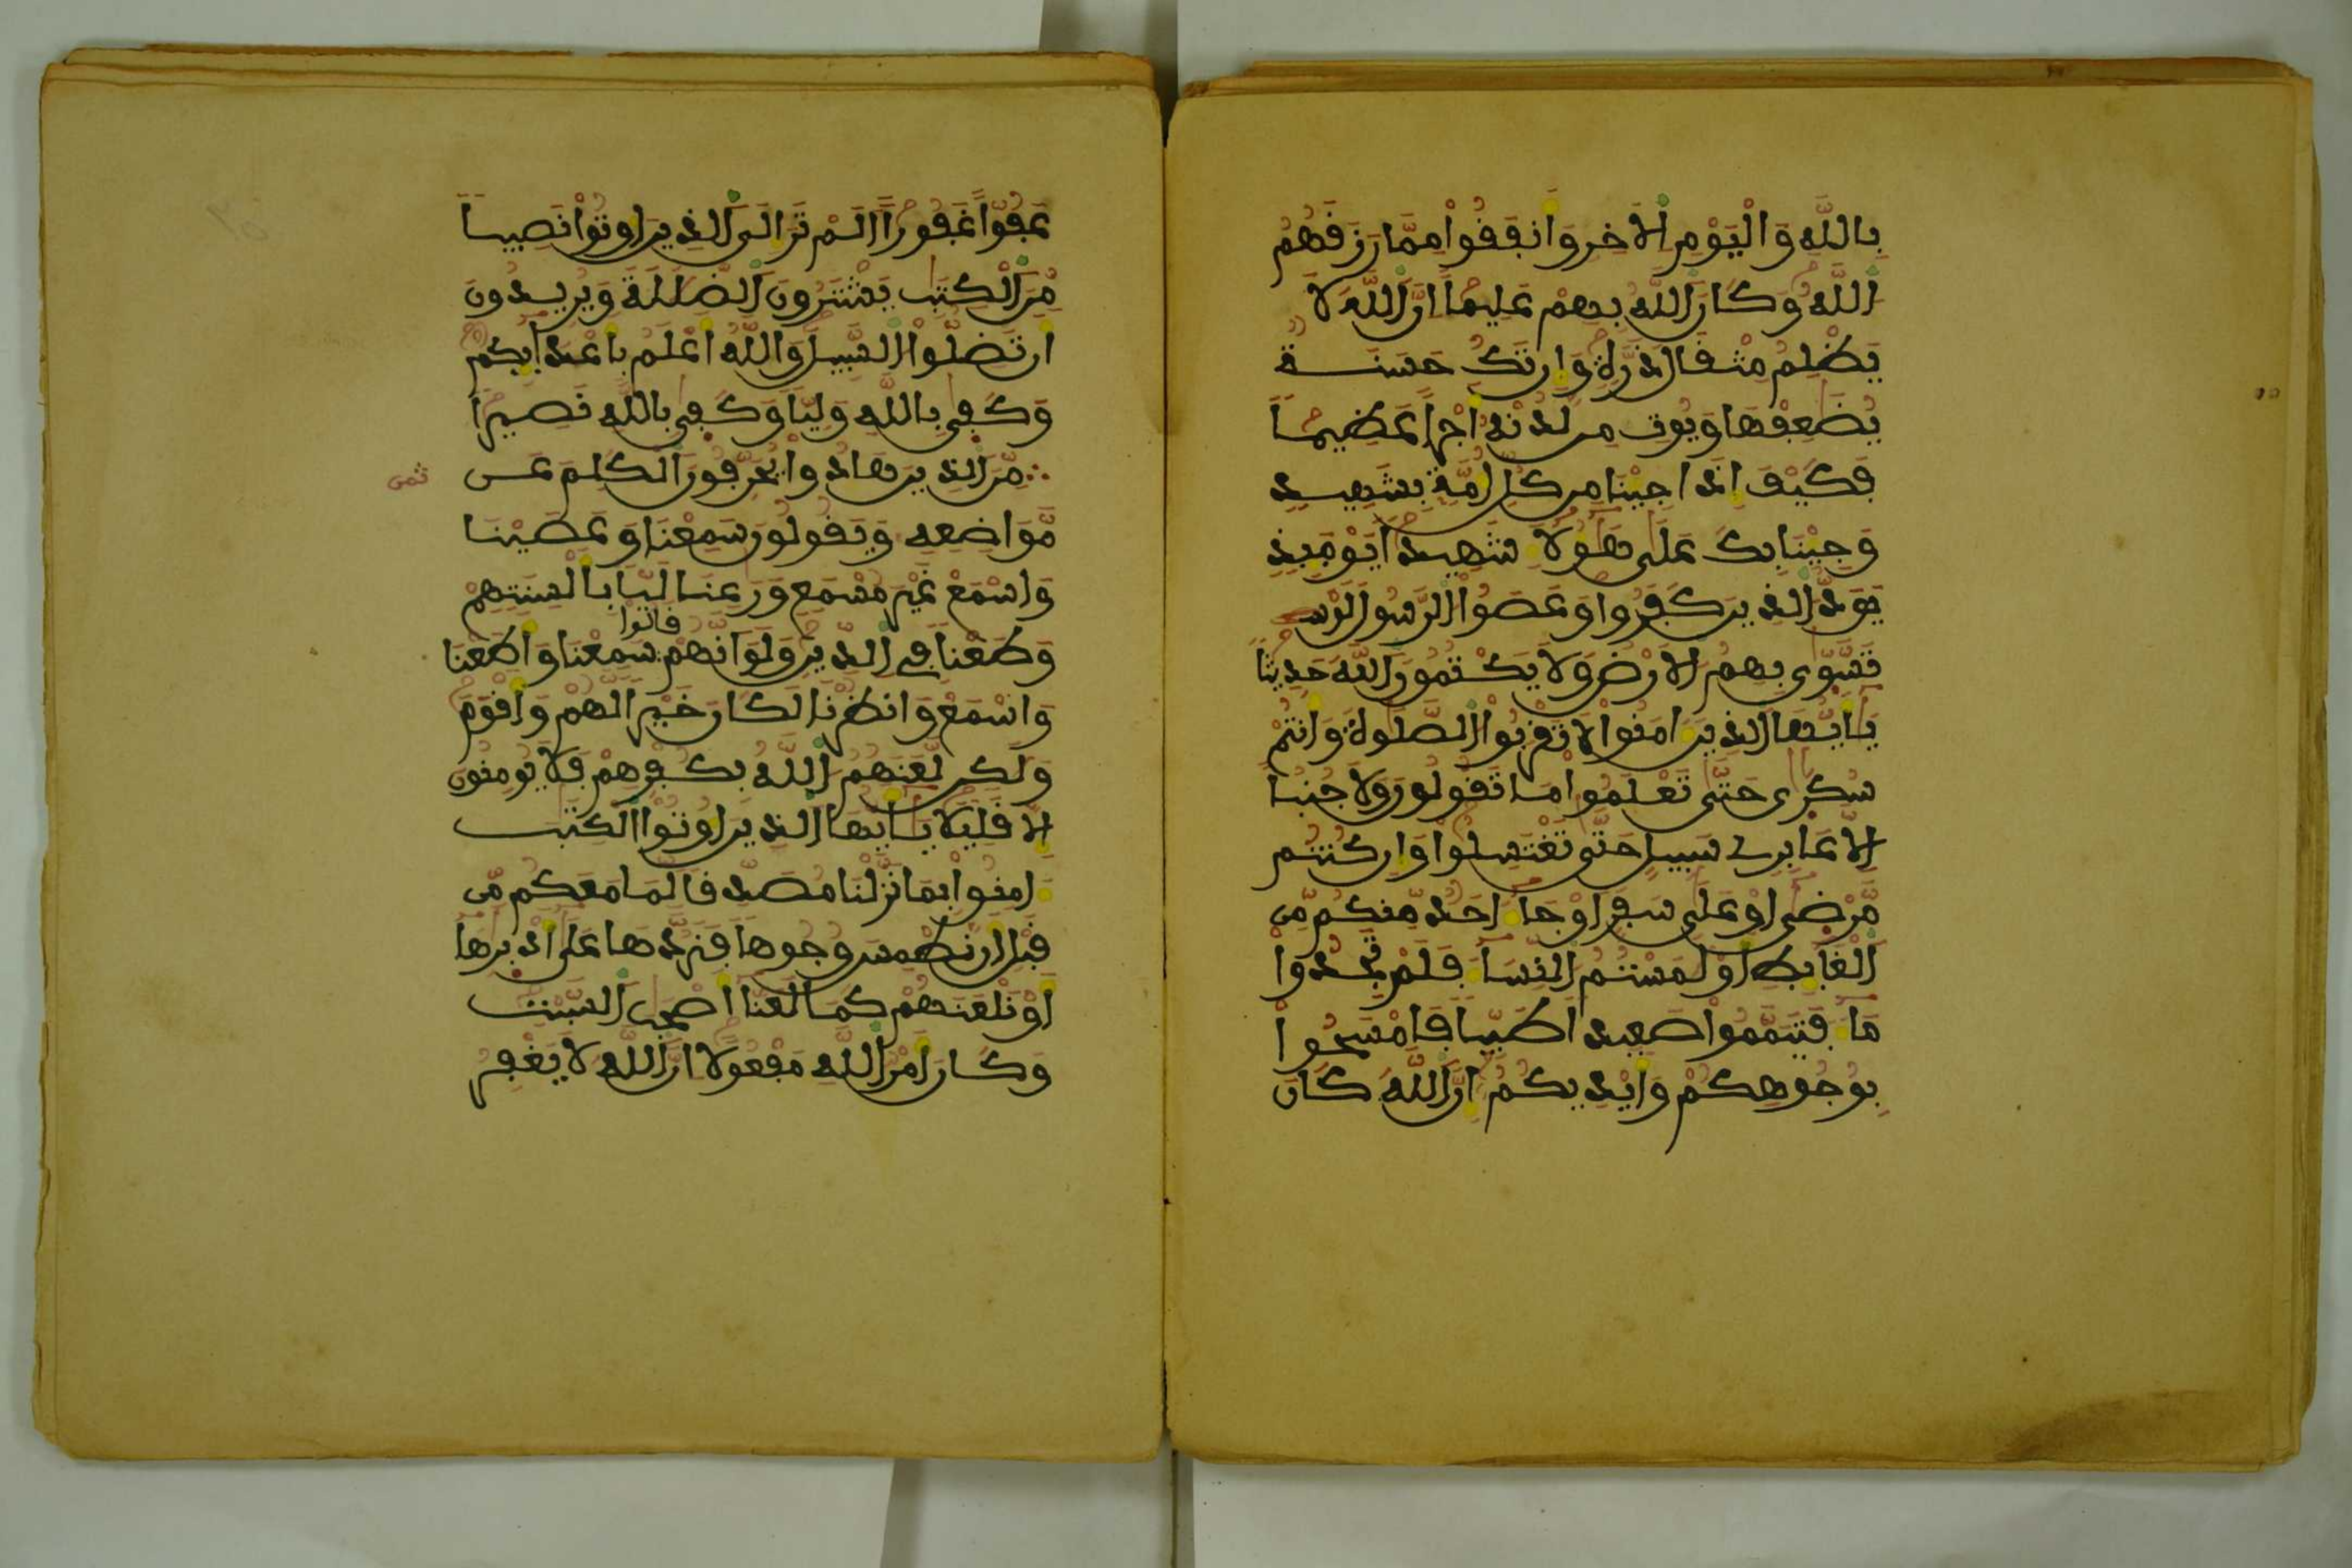 بِاللَّهِ وَالْيَوْمِ الَاخِرِ وَأَنفَقُواْ مِمَّا رَزَقَهُمُ
اللَّهُ وَكَانَ اللَّهُ بِهِمْ عَلِيماً اِنَّ اللَّهَ لَا
يَظْلِمُ مِثْقَالَ ذَرَّةٍ وَإِن تَكُ حَسَنَةٌ
يُضَٰعِفْهَا وَيُوتِ مِن لَّدُنْهُ أَجْراً عَظِيماً
فَكَيْفَ إِذَا جِيْنَا مِن كُلِّ أُمَّةٍ بِشَهِيدٍ
وَجِيْنَا بِكَ عَلَىٰ هَٰؤُلَاءِ شَهِيداً يَوْمَئِذٍ
يَوَدُّ الذِينَ كَفَرُواْ وَعَصَوُاْ الرَّسُولَ لَوْ
تَسَّوَّىٰ بِهِمُ الَارْضُ وَلَا يَكْتُمُونَ اللَّهَ حَدِيثاً
يَٰأَيُّهَا الذِينَ ءَامَنُواْ لَا تَقْرَبُواْ الصَّلَوٰةَ وَأَنتُمْ
سُكَٰرَىٰ حَتَّىٰ تَعْلَمُواْ مَا تَقُولُونَ وَلَا جُنُباً
اِلَّا عَابِرِے سَبِيلٍ حَتَّىٰ تَغْتَسِلُواْ وَإِن كُنتُم
مَّرْضَىٰ أَوْ عَلَىٰ سَفَرٍ اَوْ جَاءَ احَدٌ مِّنكُم مِّنَ
الْغَائِطِ أَوْ لَٰمَسْتُمُ النِّسَاءَ فَلَمْ تَجِدُواْ
مَاءً فَتَيَمَّمُواْ صَعِيداً طَيِّباً فَامْسَحُواْ
بِوُجُوهِكُمْ وَأَيْدِيكُمُ إِنَّ اللَّهَ كَانَ
عَفُوّاً غَفُوراً اَلَمْ تَرَ إِلَى الذِينَ أُوتُواْ نَصِيباً
مِّنَ الْكِتَٰبِ يَشْتَرُونَ الضَّلَٰلَةَ وَيُرِيدُونَ
أَن تَضِلُّواْ السَّبِيلَ وَاللَّهُ أَعْلَمُ بِأَعْدَائِكُمْ
وَكَفَىٰ بِاللَّهِ وَلِيّاً وَكَفَىٰ بِاللَّهِ نَصِيراً
مِّنَ الذِينَ هَادُواْ يُحَرِّفُونَ الْكَلِمَ عَن
ثمن
مَّوَاضِعِهِ وَيَقُولُونَ سَمِعْنَا وَعَصَيْنَا
وَاسْمَعْ غَيْرَ مُسْمَعٍ وَرَٰعِنَا لَيّاً بِأَلْسِنَتِهِمْ
وَطَعْناً فِے الدِّينِ وَلَوَ اَنَّهُمْ قَالُواْ سَمِعْنَا وَأَطَعْنَا
وَاسْمَعْ وَانظُرْنَا لَكَانَ خَيْراً لَّهُمْ وَأَقْوَمَ
وَلَٰكِن لَّعَنَهُمُ اللَّهُ بِكُفْرِهِمْ فَلَا يُومِنُونَ
إِلَّا قَلِيلاً يَٰأَيُّهَا الذِينَ أُوتُواْ الْكِتَٰبَ
ءَامِنُواْ بِمَا نَزَّلْنَا مُصَدِّقاً لِّمَا مَعَكُم مِّن
قَبْلِ أَن نَّطْمِسَ وُجُوهاً فَنَرُدَّهَا عَلَىٰ أَدْبَٰرِهَا
أَوْ نَلْعَنَهُمْ كَمَا لَعَنَّا أَصْحَٰبَ السَّبْتِ
وَكَانَ أَمْرُ اللَّهِ مَفْعُولاً اِنَّ اللَّهَ لَا يَغْفِرُ